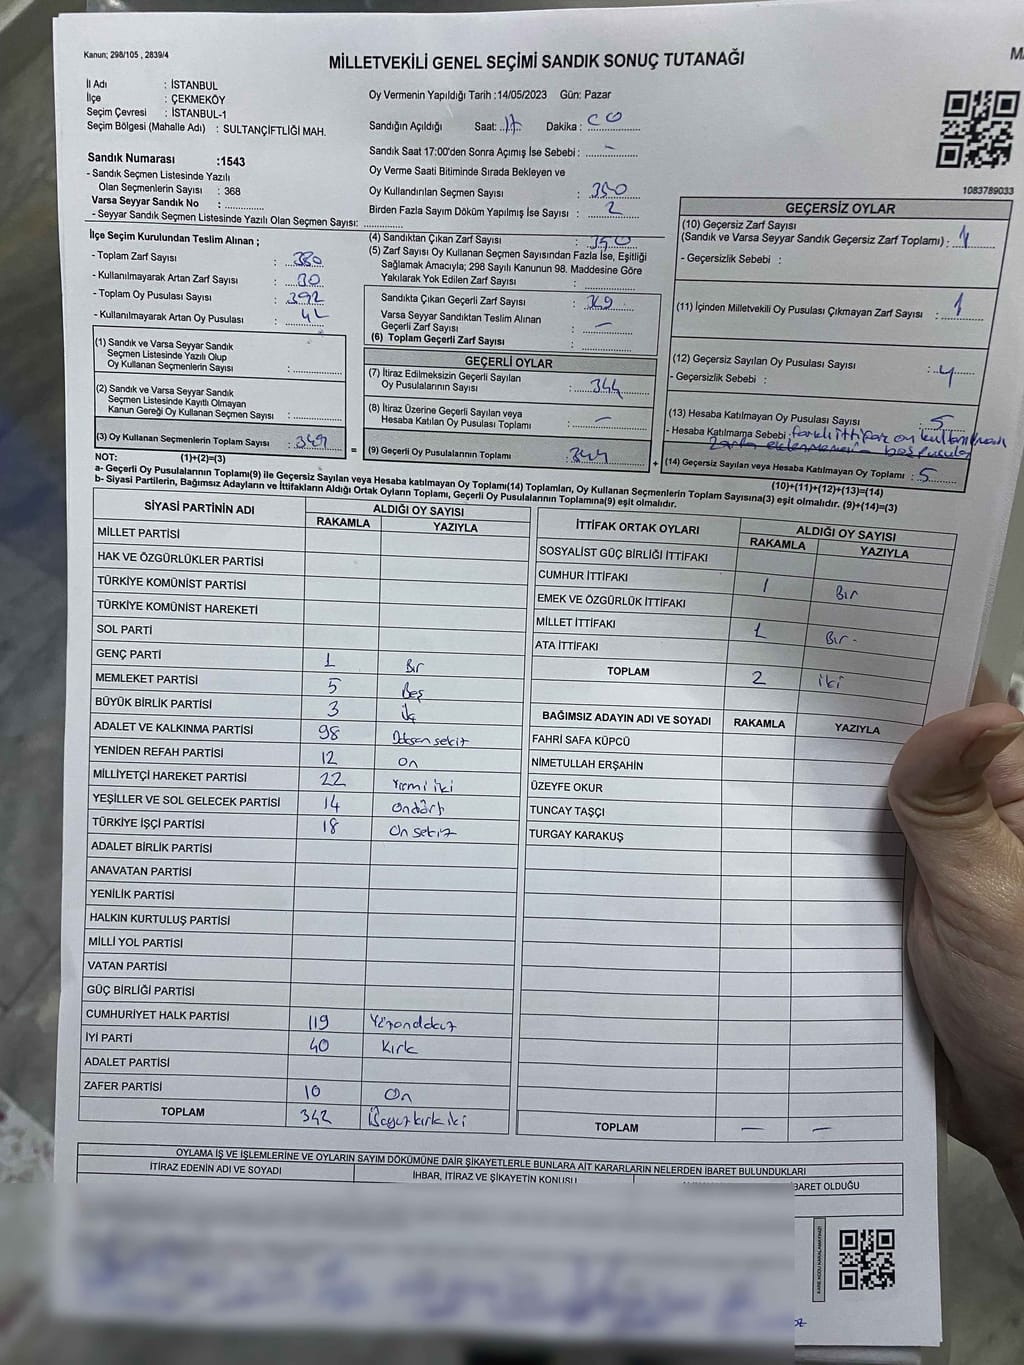 Kanun; 298/105 , 2839/4
MİLLETVEKİLİ GENEL SEÇİMİ SANDIK SONUÇ TUTANAĞI
İl Adı : İSTANBUL
İlçe : ÇEKMEKÖY
Seçim Çevresi : İSTANBUL-1
Seçim Bölgesi (Mahalle Adı) : SULTANÇİFTLİĞİ MAH.
Oy Vermenin Yapıldığı Tarih :14/05/2023 Gün: Pazar
Sandığın Açıldığı Saat: 17 Dakika : 00
Sandık Saat 17:00'den Sonra Açımış İse Sebebi : –
Oy Verme Saati Bitiminde Sırada Bekleyen ve
Oy Kullandırılan Seçmen Sayısı : 350
Birden Fazla Sayım Döküm Yapılmış İse Sayısı : 2
1083789033
Sandık Numarası :1543
- Sandık Seçmen Listesinde Yazılı
Olan Seçmenlerin Sayısı : 368
Varsa Seyyar Sandık No :
- Seyyar Sandık Seçmen Listesinde Yazılı Olan Seçmen Sayısı:
İlçe Seçim Kurulundan Teslim Alınan ;
- Toplam Zarf Sayısı : 380
- Kullanılmayarak Artan Zarf Sayısı : 30
- Toplam Oy Pusulası Sayısı : 392
- Kullanılmayarak Artan Oy Pusulası : 42
(1) Sandık ve Varsa Seyyar Sandık
Seçmen Listesinde Yazılı Olup
Oy Kullanan Seçmenlerin Sayısı :
(2) Sandık ve Varsa Seyyar Sandık
Seçmen Listesinde Kayıtlı Olmayan
Kanun Gereği Oy Kullanan Seçmen Sayısı :
(3) Oy Kullanan Seçmenlerin Toplam Sayısı : 349
(4) Sandıktan Çıkan Zarf Sayısı : 350
(5) Zarf Sayısı Oy Kullanan Seçmen Sayısından Fazla İse, Eşitliği
Sağlamak Amacıyla; 298 Sayılı Kanunun 98. Maddesine Göre
Yakılarak Yok Edilen Zarf Sayısı :
Sandıkta Çıkan Geçerli Zarf Sayısı : 349
Varsa Seyyar Sandıktan Teslim Alınan
Geçerli Zarf Sayısı : –
(6) Toplam Geçerli Zarf Sayısı :
GEÇERLİ OYLAR
(7) İtiraz Edilmeksizin Geçerli Sayılan
Oy Pusulalarının Sayısı : 344
(8) İtiraz Üzerine Geçerli Sayılan veya
Hesaba Katılan Oy Pusulası Toplamı : –
= (9) Geçerli Oy Pusulalarının Toplamı : 344 +
GEÇERSİZ OYLAR
(10) Geçersiz Zarf Sayısı
(Sandık ve Varsa Seyyar Sandık Geçersiz Zarf Toplamı) : 1
- Geçersizlik Sebebi :
(11) İçinden Milletvekili Oy Pusulası Çıkmayan Zarf Sayısı : 1
(12) Geçersiz Sayılan Oy Pusulası Sayısı : 4
- Geçersizlik Sebebi :
(13) Hesaba Katılmayan Oy Pusulası Sayısı : 5
- Hesaba Katılmama Sebebi : farklı ittifak oy kullanılması
boş pusula
(14) Geçersiz Sayılan veya Hesaba Katılmayan Oy Toplamı : 5
NOT: (1)+(2)=(3)
(10)+(11)+(12)+(13)=(14)
a- Geçerli Oy Pusulalarının Toplamı(9) ile Geçersiz Sayılan veya Hesaba katılmayan Oy Toplamı(14) Toplamları, Oy Kullanan Seçmenlerin Toplam Sayısına(3) eşit olmalıdır. (9)+(14)=(3)
b- Siyasi Partilerin, Bağımsız Adayların ve İttifakların Aldığı Ortak Oyların Toplamı, Geçerli Oy Pusulalarının Toplamına(9) eşit olmalıdır.
SİYASİ PARTİNİN ADI ALDIĞI OY SAYISI
RAKAMLA YAZIYLA
MİLLET PARTİSİ
HAK VE ÖZGÜRLÜKLER PARTİSİ
TÜRKİYE KOMÜNİST PARTİSİ
TÜRKİYE KOMÜNİST HAREKETİ
SOL PARTİ
GENÇ PARTİ 1 Bir
MEMLEKET PARTİSİ 5 Beş
BÜYÜK BİRLİK PARTİSİ 3 Üç
ADALET VE KALKINMA PARTİSİ 98 Doksan sekiz
YENİDEN REFAH PARTİSİ 12 On
MİLLİYETÇİ HAREKET PARTİSİ 22 Yirmi iki
YEŞİLLER VE SOL GELECEK PARTİSİ 14 Ondört
TÜRKİYE İŞÇİ PARTİSİ 18 On sekiz
ADALET BİRLİK PARTİSİ
ANAVATAN PARTİSİ
YENİLİK PARTİSİ
HALKIN KURTULUŞ PARTİSİ
MİLLİ YOL PARTİSİ
VATAN PARTİSİ
GÜÇ BİRLİĞİ PARTİSİ
CUMHURİYET HALK PARTİSİ 119 Yüzondokuz
İYİ PARTİ 40 Kırk
ADALET PARTİSİ
ZAFER PARTİSİ 10 On
TOPLAM 342 Üçyüzkırkiki
İTTİFAK ORTAK OYLARI ALDIĞI OY SAYISI
RAKAMLA YAZIYLA
SOSYALİST GÜÇ BİRLİĞİ İTTİFAKI
CUMHUR İTTİFAKI 1 Bir
EMEK VE ÖZGÜRLÜK İTTİFAKI
MİLLET İTTİFAKI 1 Bir
ATA İTTİFAKI
TOPLAM 2 iki
BAĞIMSIZ ADAYIN ADI VE SOYADI RAKAMLA YAZIYLA
FAHRİ SAFA KÜPCÜ
NİMETULLAH ERŞAHİN
ÜZEYFE OKUR
TUNCAY TAŞÇI
TURGAY KARAKUŞ
TOPLAM — —
OYLAMA İŞ VE İŞLEMLERİNE VE OYLARIN SAYIM DÖKÜMÜNE DAİR ŞİKAYETLERLE BUNLARA AİT KARARLARIN NELERDEN İBARET BULUNDUKLARI
İTİRAZ EDENİN ADI VE SOYADI İHBAR, İTİRAZ VE ŞİKAYETİN KONUSU İBARET OLDUĞU
KARE KODU KARALAMAYINIZ!